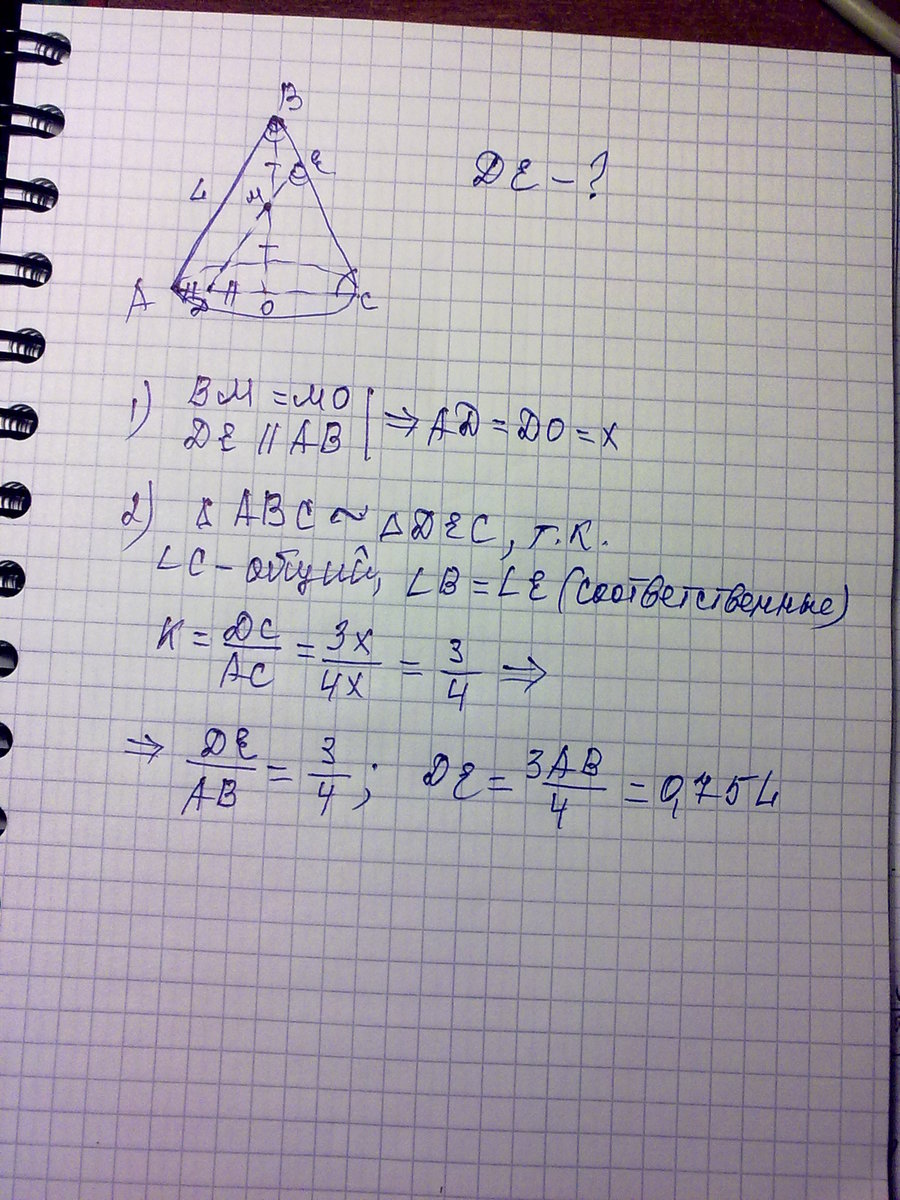 B
E
DE - ?
L
M
A
D
O
C
1) BM = MO
DE || AB
⇒ AD = DO = x
2) Δ ABC ~ ΔDEC, т.к.
∠C - общий, ∠B = ∠E (соответственные)
K = DC/AC = 3x/4x = 3/4 ⇒
⇒ DE/AB = 3/4 ; DE = 3AB/4 = 0,75L